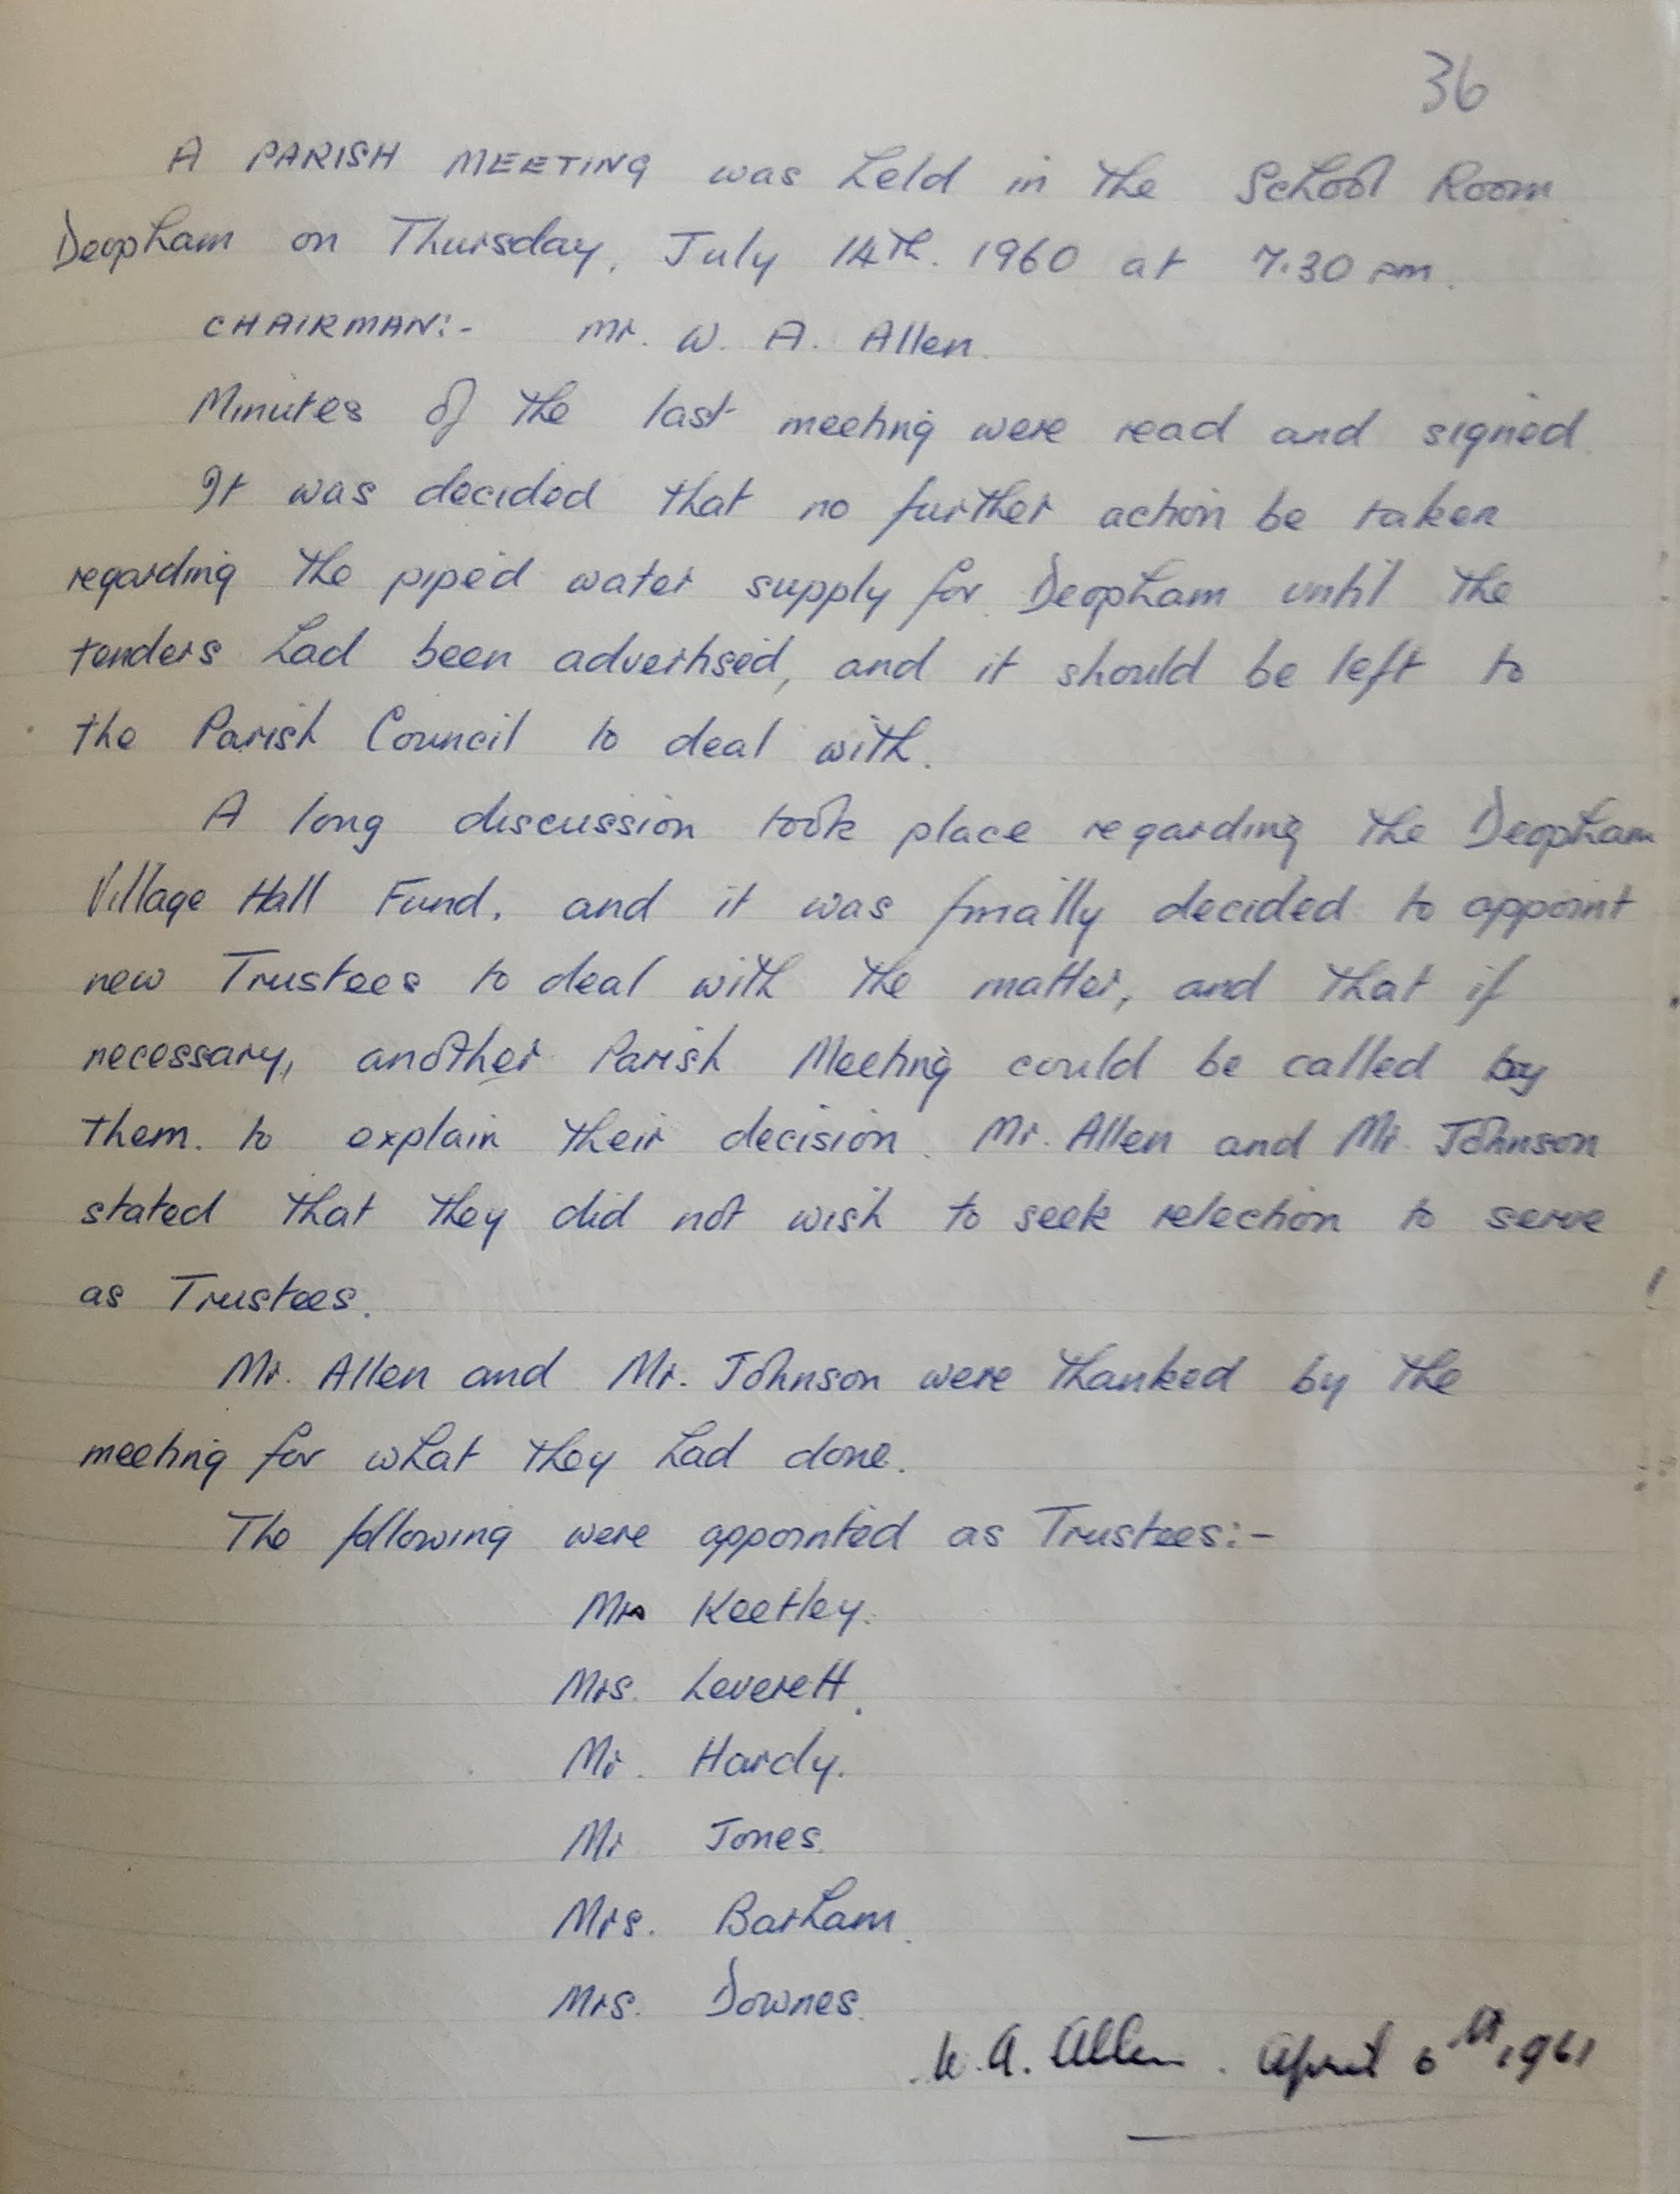 36
A PARISH MEETING was held in the School Room
Deopham on Thursday, July 14th. 1960 at 7.30 pm.
CHAIRMAN:- Mr. W. A. Allen.
Minutes of the last meeting were read and signed.
It was decided that no further action be taken
regarding the piped water supply for Deopham until the
tenders had been advertised, and it should be left to
the Parish Council to deal with.
A long discussion took place regarding the Deopham
Village Hall Fund, and it was finally decided to appoint
new Trustees to deal with the matter, and that if
necessary, another Parish Meeting could be called by
them. to explain their decision. Mr. Allen and Mr. Johnson
stated that they did not wish to seek relection to serve
as Trustees.
Mr. Allen and Mr. Johnson were thanked by the
meeting for what they had done.
The following were appointed as Trustees:-
Mrs Keetley.
Mrs. Leverett.
Mr. Hardy.
Mr Jones.
Mrs. Barham.
Mrs. Downes.
W. A. Allen. April 6th, 1961